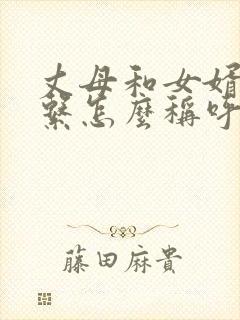 丈母和女婿
繫怎麼稱呼
藤田麻貴